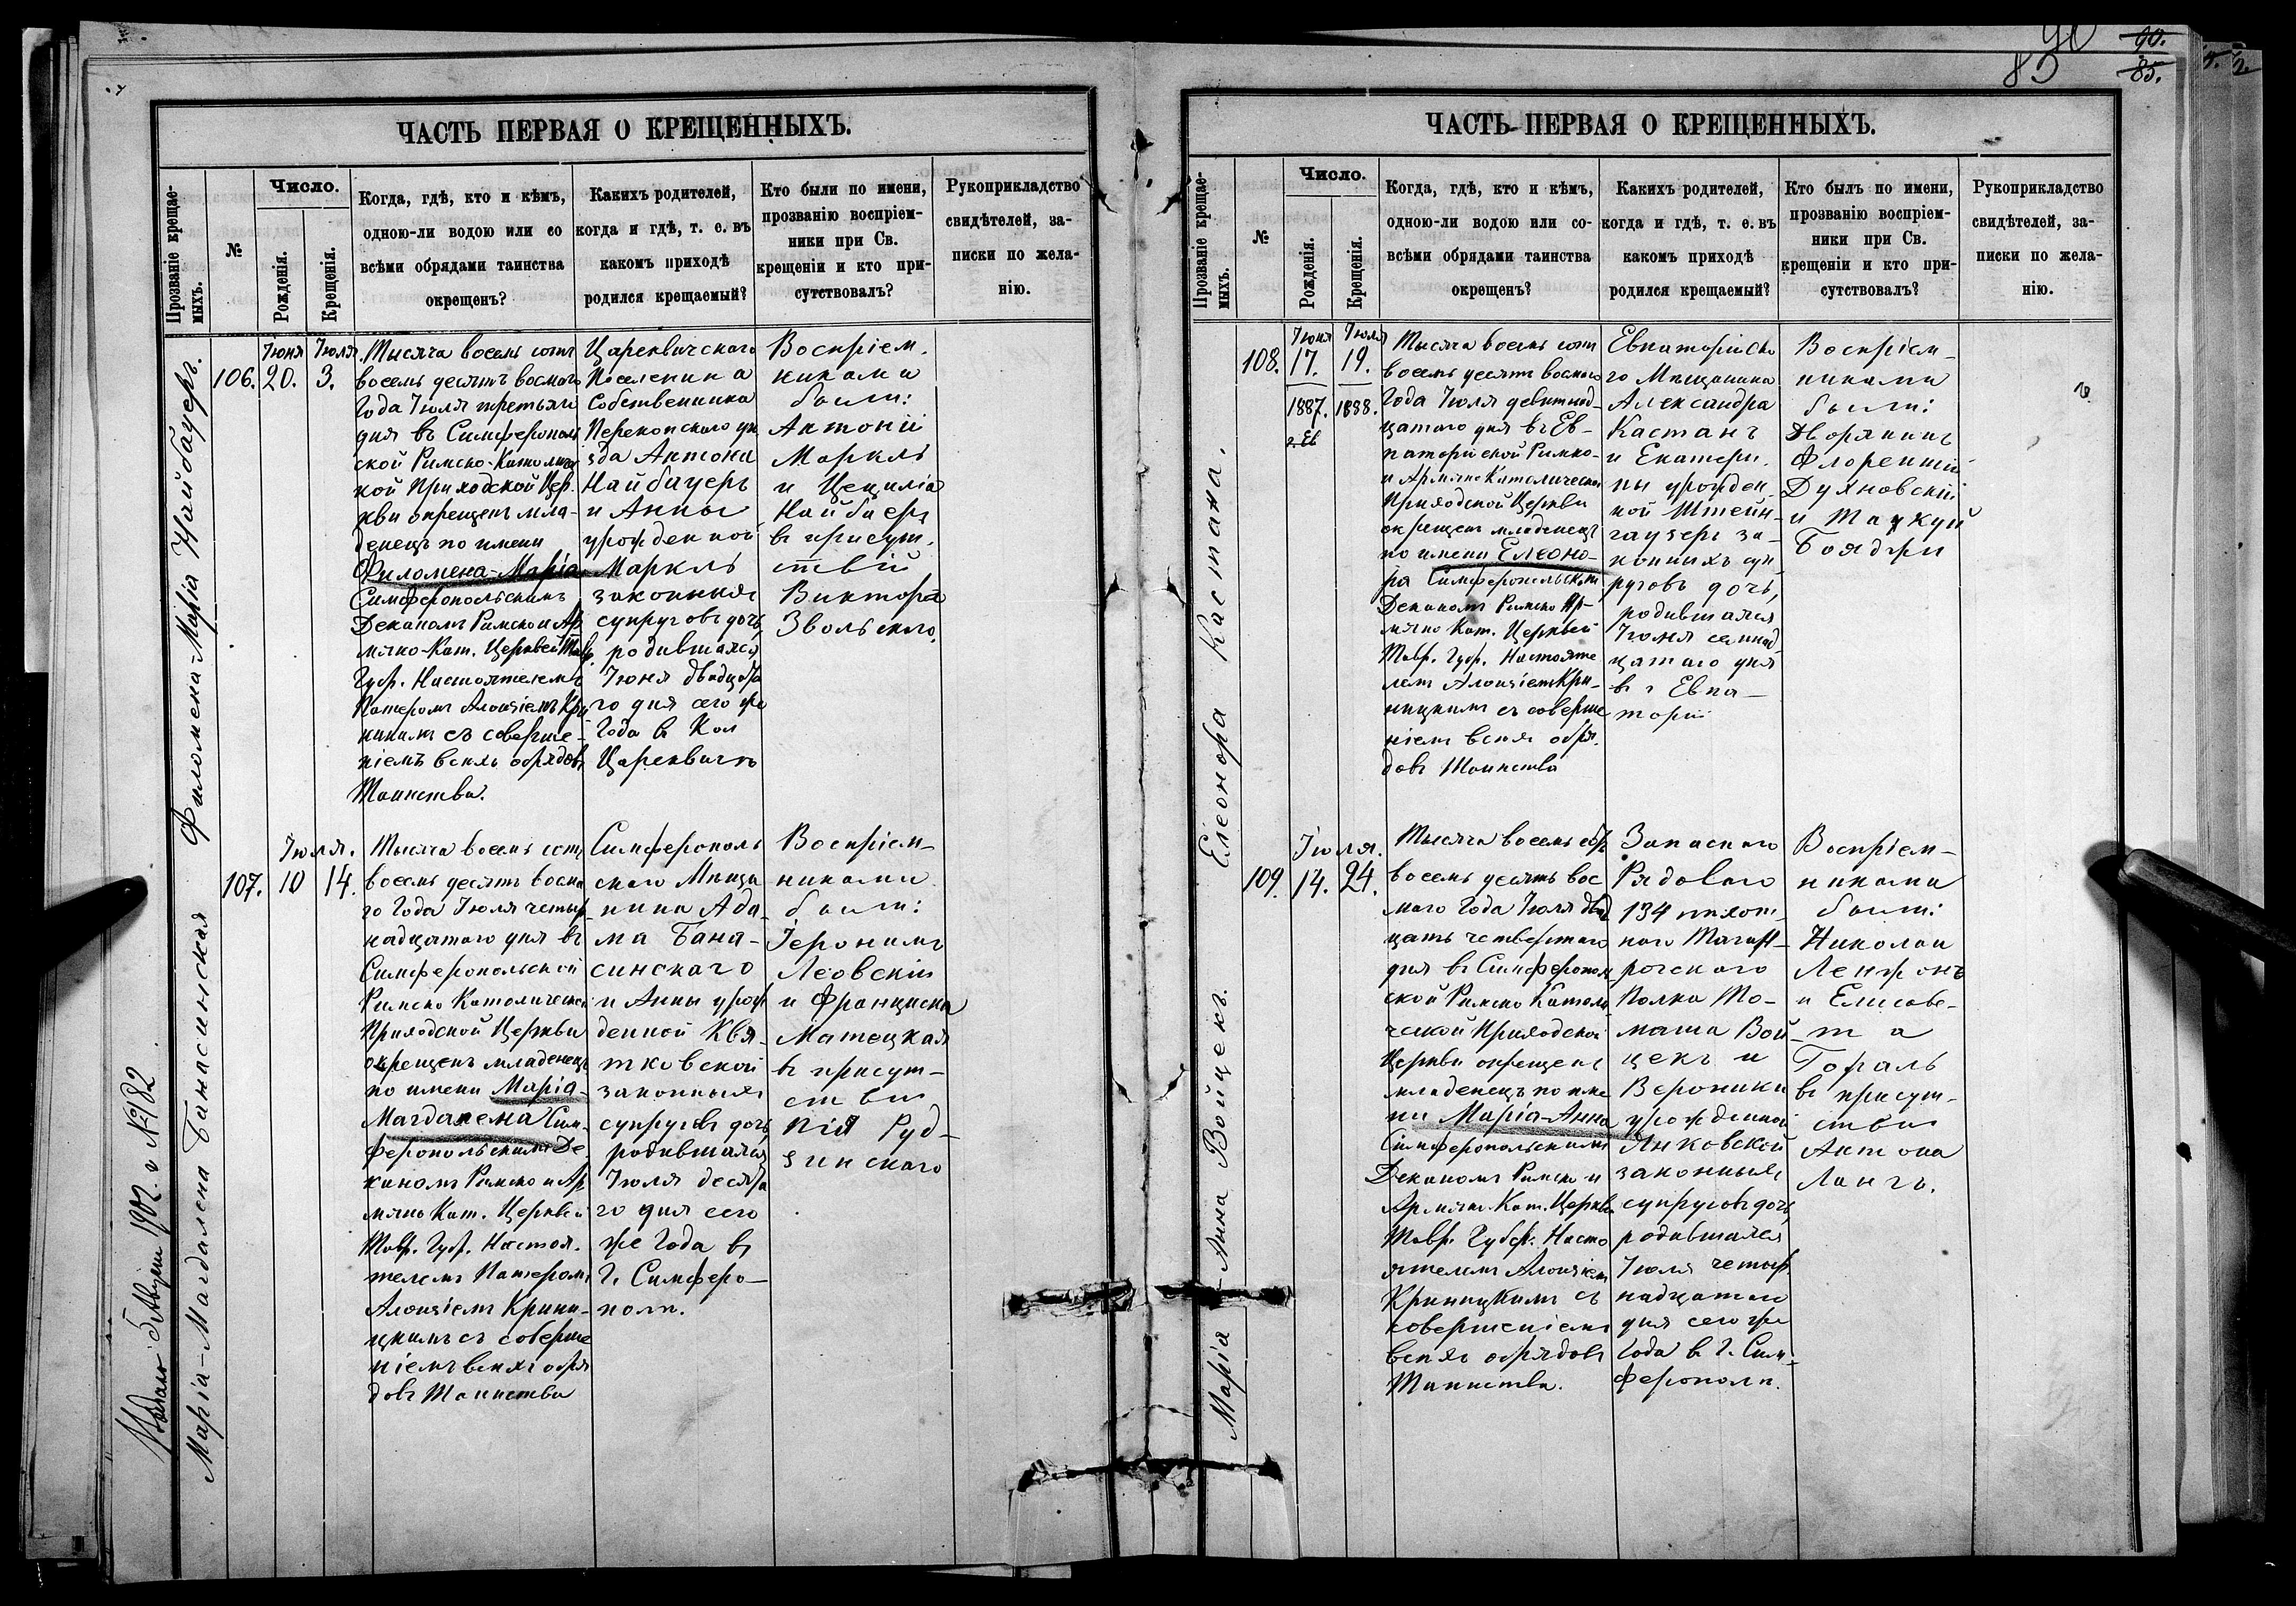 90
85
90.
85.
ЧАСТЬ ПЕРВАЯ О КРЕЩЕННЫХЪ.
Прозваніе крещае-
мыхъ.
№
Число.
Рожденія.
Крещенія.
Когда, гдѣ, кто и кѣмъ,
одною-ли водою или со
всѣми обрядами таинства
окрещенъ?
Какихъ родителей,
когда и гдѣ, т. е. въ
какомъ приходѣ
родился крещаемый?
Кто были по имени,
прозванію воспріем-
ники при Св.
крещеніи и кто при-
сутствовалъ?
Рукоприкладство
свидѣтелей, за-
писки по жела-
нію.
Филомена-Марія Найбауеръ.
106.
Іюня
20.
Іюля.
3.
Тысяча восемь сотъ
восемь десятъ восмаго
Года Іюля третьяго
дня въ Симферополь
ской Римско-Католичес
кой Приходской Цер.
кви окрещенъ мла-
денецъ по имени
Филомена-Марія
Симферопольскимъ
Деканомъ Римско и Ар
мяно-Кат. Церквей Тав.
Губ. Настоятелемъ
Патеромъ Алоизіемъ Кри
ницкимъ съ соверше-
ніемъ всѣхъ обрядовъ
Таинства.
Царевичскаго
Поселенина
Собственника
Перекопскаго уѣ
зда Антона
Найбауеръ
и Анны
урожденной
Маркль
законныхъ
супруговъ дочь,
родившаяся
Іюня двадцата
го дня сего же
Года в Кол
Царевичъ
Воспріем.
никами
были:
Антоній
Маркль
и Цецилія
Найбаеръ
въ присут.
ствіи
Виктора
Звольскаго.
107.
Іюля.
10
14.
Марія-Магдалена Банасинская
Тысяча восемь сотъ
восемь десятъ восма
го Года Іюля четыр
надцатаго дня въ
Симферопольской
Римско Католической
Приходской Церкви
окрещенъ младенецъ
по имени Марія-
Магдалена Сим-
феропольскимъ Де
каномъ Римско и Ар
мяно Кат. Церквей
Тавр. Губ. Настоя.
телемъ Патеромъ
Алоизіемъ Крини-
цкимъ съ соверше
ніемъ всѣхъ обря
довъ Таинства
Симферополь
скаго Мѣща
нина Ада-
ма Бана-
синскаго
и Анны урож
денной Квя-
тковской
законныхъ
супруговъ дочь,
родившаяся
Іюля десята
го дня сего
же Года въ
Г. Симферо-
полѣ.
Воспріем-
никами
были:
Іеронимъ
Леовскій
и Франциска
Матецкая
въ присут-
ствіи
Пія Руд-
зинскаго
1902. г №182
ЧАСТЬ ПЕРВАЯ О КРЕЩЕННЫХЪ.
Прозваніе крещае-
мыхъ.
№
Число.
Рожденія.
Крещенія.
Когда, гдѣ, кто и кѣмъ,
одною-ли водою или со-
всѣми обрядами таинства
окрещенъ?
Какихъ родителей,
когда и гдѣ, т. е. въ
какомъ приходѣ
родился крещаемый?
Кто былъ по имени,
прозванію воспріем-
ники при Св.
крещеніи и кто при-
сутствовалъ?
Рукоприкладство
свидѣтелей, за-
писки по жела-
нію.
Елеонора Кастана.
108.
Іюня
17.
1887.
Іюля
19.
1888.
Тысяча восемь сотъ
восемь десятъ восмаго
Года Іюля девятнад-
цатаго дня въ Ев-
паторійской Римско-
и Армяно Католической
Приходской Церкви
окрещенъ младенецъ
по имени Елеоно-
ра Симферопольскимъ
Деканомъ Римско Ар-
мяно Кат. Церквей
Тавр. Губ. Настояте
лемъ Алоизіемъ Кри-
ницкимъ съ соверше
ніемъ всѣхъ обря.
довъ Таинства
Евпаторійска
го Мѣщанина
Александра
Кастанъ
и Екатери.
ны урожден
ной Штейн-
гаузеръ за-
конныхъ суп
руговъ дочь,
родившаяся
Іюня семнад
цатаго дня
въ г Евпа-
торіи
Воспріем-
никами
были:
Дворянинъ
Флоренцій
Дуяновскій
и
Бояджи
109.
Іюля.
14.
24.
Марія-Анна Войцекъ.
Тысяча восемь сотъ
восемь десятъ вос
маго Года Іюля двад
цать четвертаго
дня въ Симферополь
ской Римско Католи
ческой Приходской
Церкви окрещенъ
младенецъ по име
ни Марія-Анна
Симферопольскимъ
Деканомъ Римско и
Армяно Кат. Церквей
Тавр. Губер. Насто
ятелемъ Алоизіемъ
Криницкимъ съ
совершеніемъ
всѣхъ обрядовъ
Таинства.
Запаснаго
Рядоваго
134 пѣхот-
наго Таган-
рогскаго
Полка То-
маша Вой-
цекъ и
Вероники
урожденной
Янковской
законныхъ
супруговъ дочь,
родившаяся
Іюля четыр
надцатаго
дня сего же
Года в Г. Сим-
ферополѣ.
Воспріем-
никами
были:
Николай
Ленфонъ
и Елисаве-
та
Гораль
въ присут-
ствіи
Антона
Лангъ.